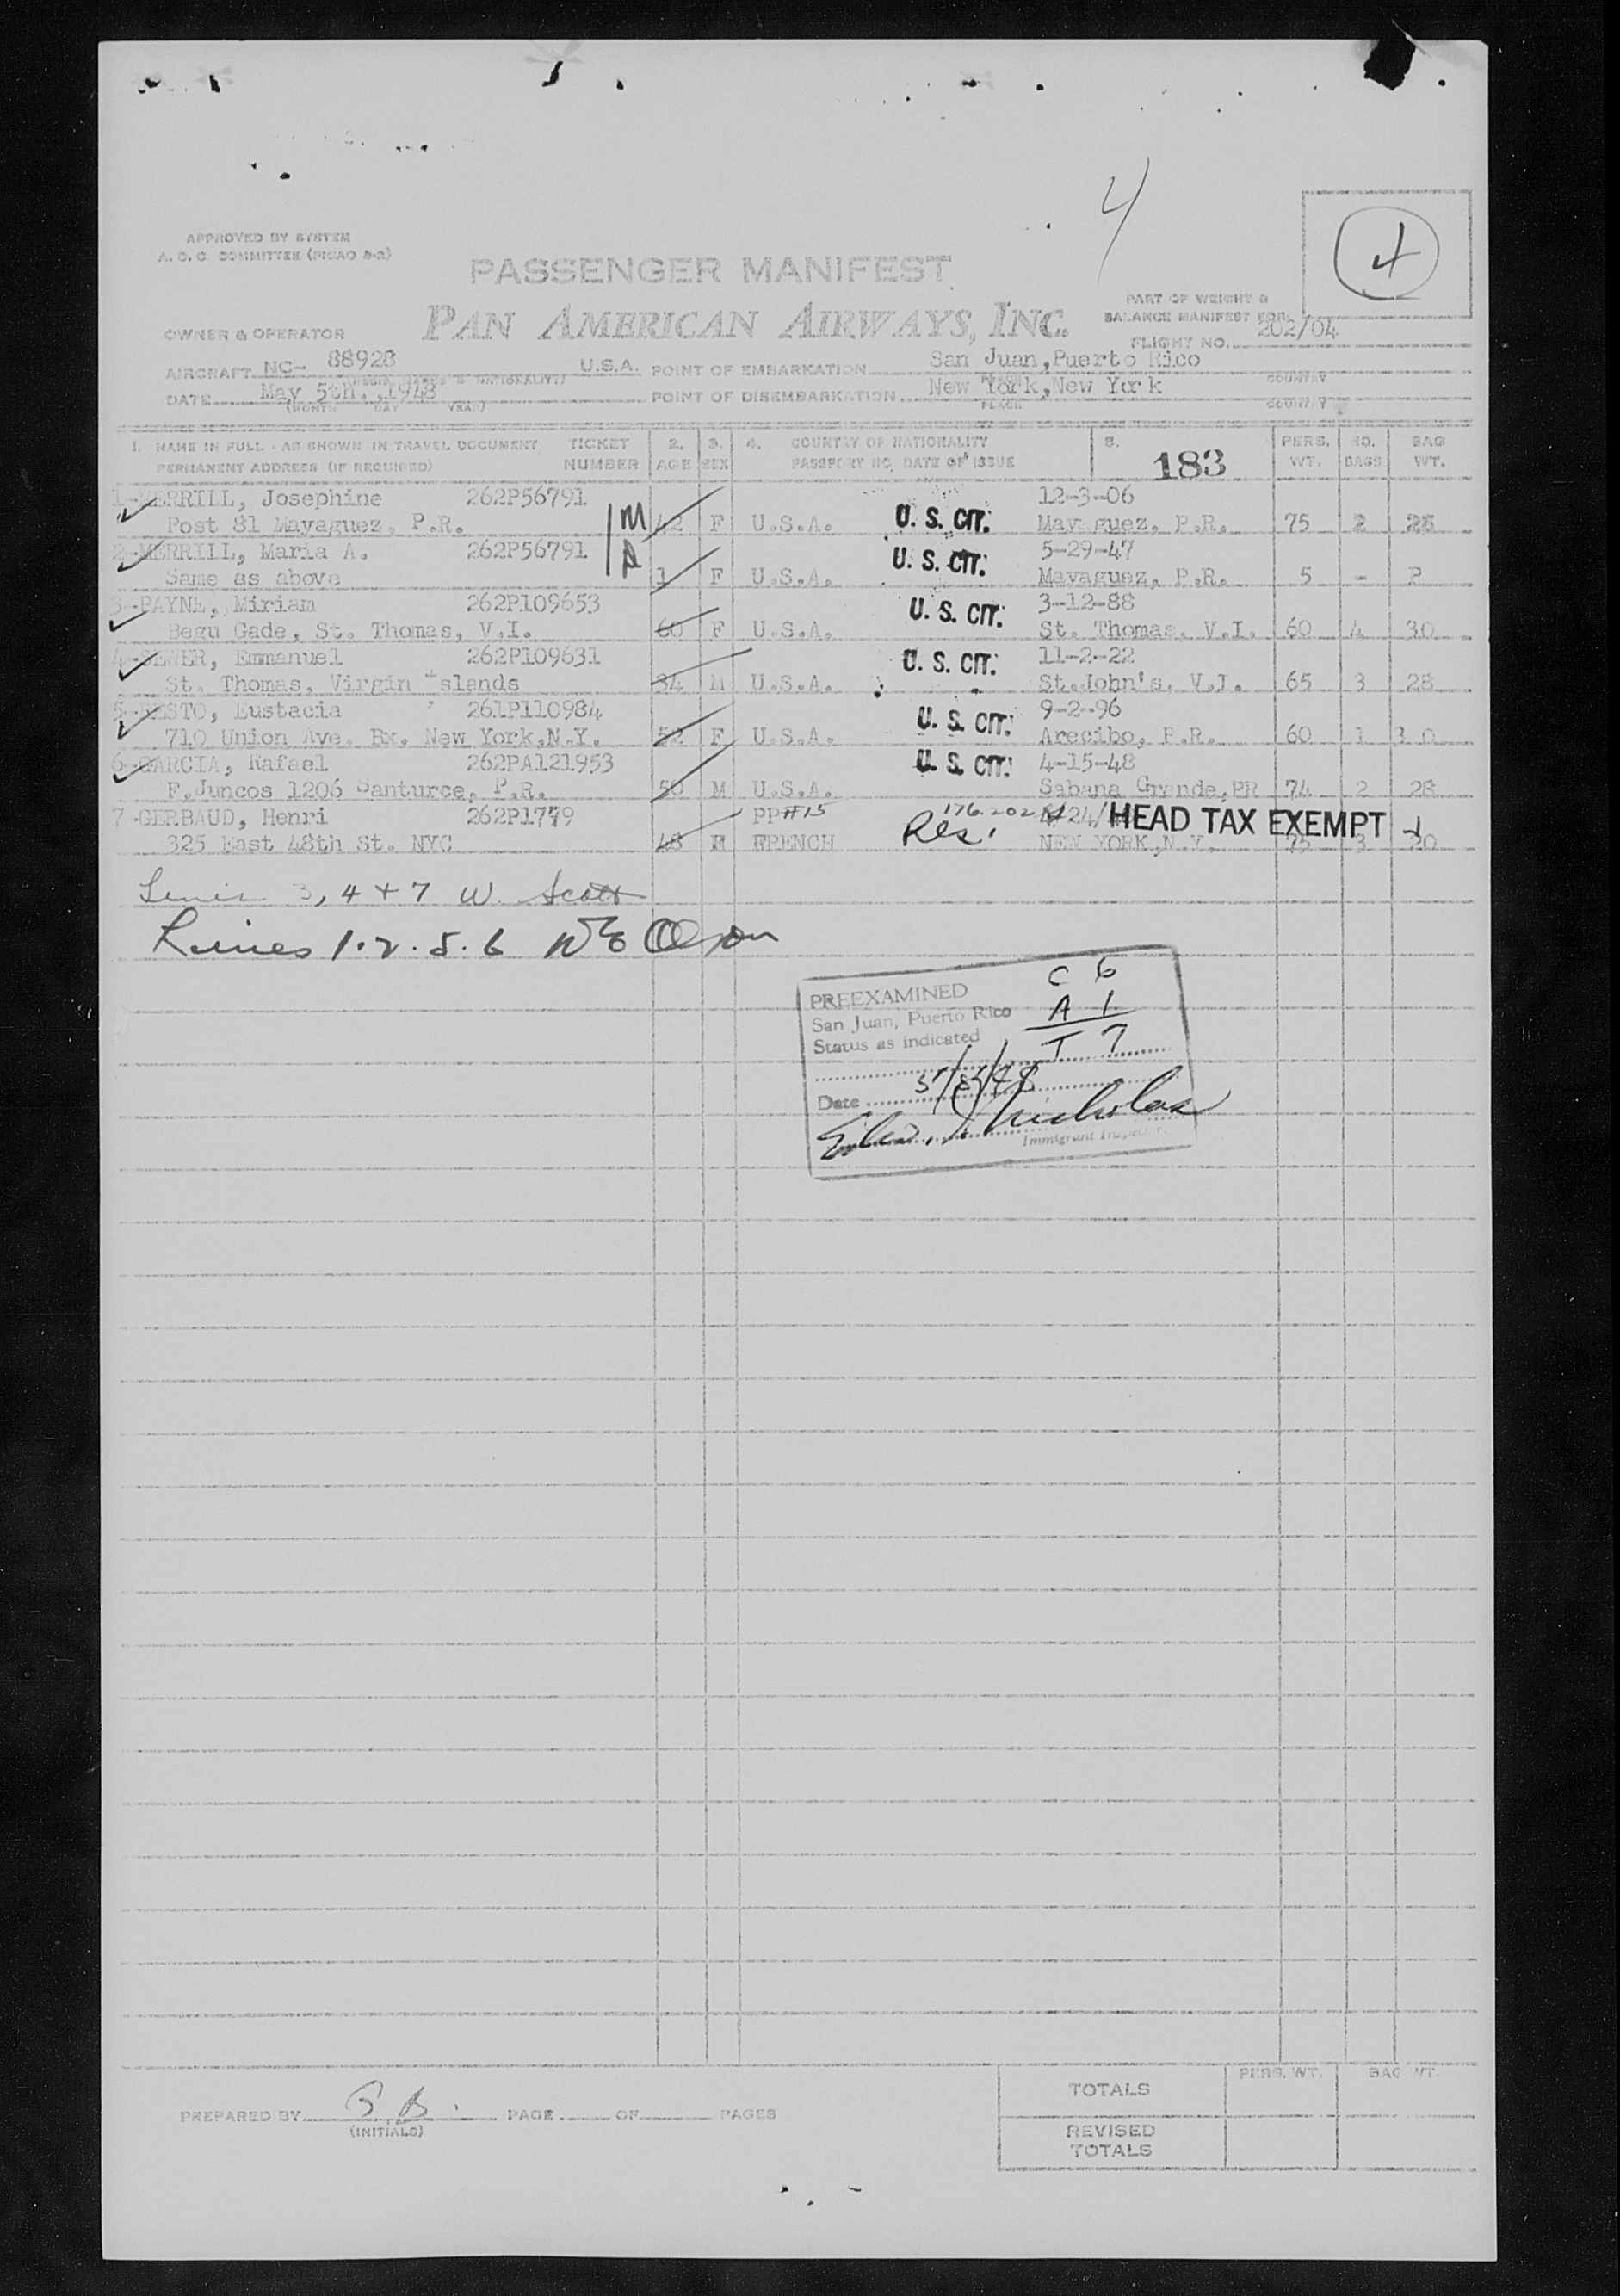 4
APPROVED BY SYSTEM
A. O. C. COMMITTEE (PICAO 8-2)
PASSENGER MANIFEST
PAN AMERICAN AIRWAYS, INC.
PART OF WEIGHT &
BALANCE MANIFEST FOR
FLIGHT NO. 202/04
4
OWNER & OPERATOR
AIRCRAFT NC- 88928 U.S.A. POINT OF EMBARKATION San Juan, Puerto Rico
DATE May 5th., 1948 POINT OF DISEMBARKATION New York, New York
(MONTH DAY YEAR) PLACE COUNTRY
1. NAME IN FULL - AS SHOWN IN TRAVEL DOCUMENT TICKET 2. 3. 4. COUNTRY OF NATIONALITY 5. PERS. NO. BAG
PERMANENT ADDRESS (IF REQUIRED) NUMBER AGE SEX PASSPORT NO. DATE OF ISSUE 183 WT. BAGS WT.
1-MERRILL, Josephine 262P56791 12-3-06
Post 81 Mayaguez, P.R. M 42 F U.S.A. U. S. CIT. Mayaguez, P.R. 75 2 28
2-MERRILL, Maria A. 262P56791 U. S. CIT. 5-29-47
Same as above 1 F U.S.A. Mayaguez, P.R. 5 - 2
3-PAYNE, Miriam 262P109653 U. S. CIT. 3-12-88
Begu Gade, St. Thomas, V.I. 60 F U.S.A. St. Thomas, V.I. 60 4 30
4-SEWER, Emmanuel 262P109631 U. S. CIT. 11-2-22
St. Thomas, Virgin Islands 34 M U.S.A. St.John's, V.I. 65 3 28
5-RESTO, Eustacia 261P110984 U. S. CIT. 9-2-96
710 Union Ave. Bx. New York,N.Y. 52 F U.S.A. Arecibo, P.R. 60 1 30
6-GARCIA, Rafael 262PA121953 U. S. CIT. 4-15-48
F.Juncos 1206 Santurce, P.R. 50 M U.S.A. Sabana Grande,PR 74 2 28
7-GERBAUD, Henri 262P1779 PP#15 176 202 HEAD TAX EXEMPT
325 East 48th St. NYC 48 M FRENCH Res. NEW YORK,N.Y. 75 3 20
3, 4 + 7 W. Scott
1.2.5.6
PREEXAMINED C 6
San Juan, Puerto Rico A 1
Status as indicated T 7
Date 5/5/48
Nicholas
Immigrant Inspector
PREPARED BY PAGE OF PAGES
(INITIALS)
PERS. WT. BAG WT.
TOTALS
REVISED
TOTALS